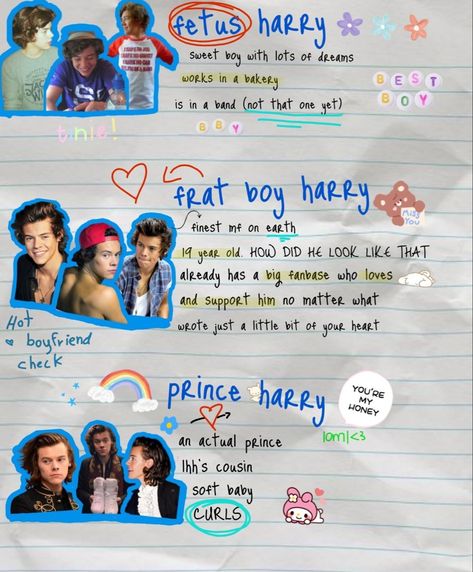 fetus harry
sweet boy with lots of dreams
works in a bakery
is in a band (not that one yet)
BEST
BOY
BBY
frat boy harry
MISS
YOU
finest mf on earth
19 year old. HOW DID HE LOOK LIKE THAT
already has a big fanbase who loves
and support him no matter what
wrote just a little bit of your heart
Hot
boyfriend
check
prince harry
YOU'RE
MY
HONEY
loml<3
an actual prince
lhh's cousin
soft baby
CURLS